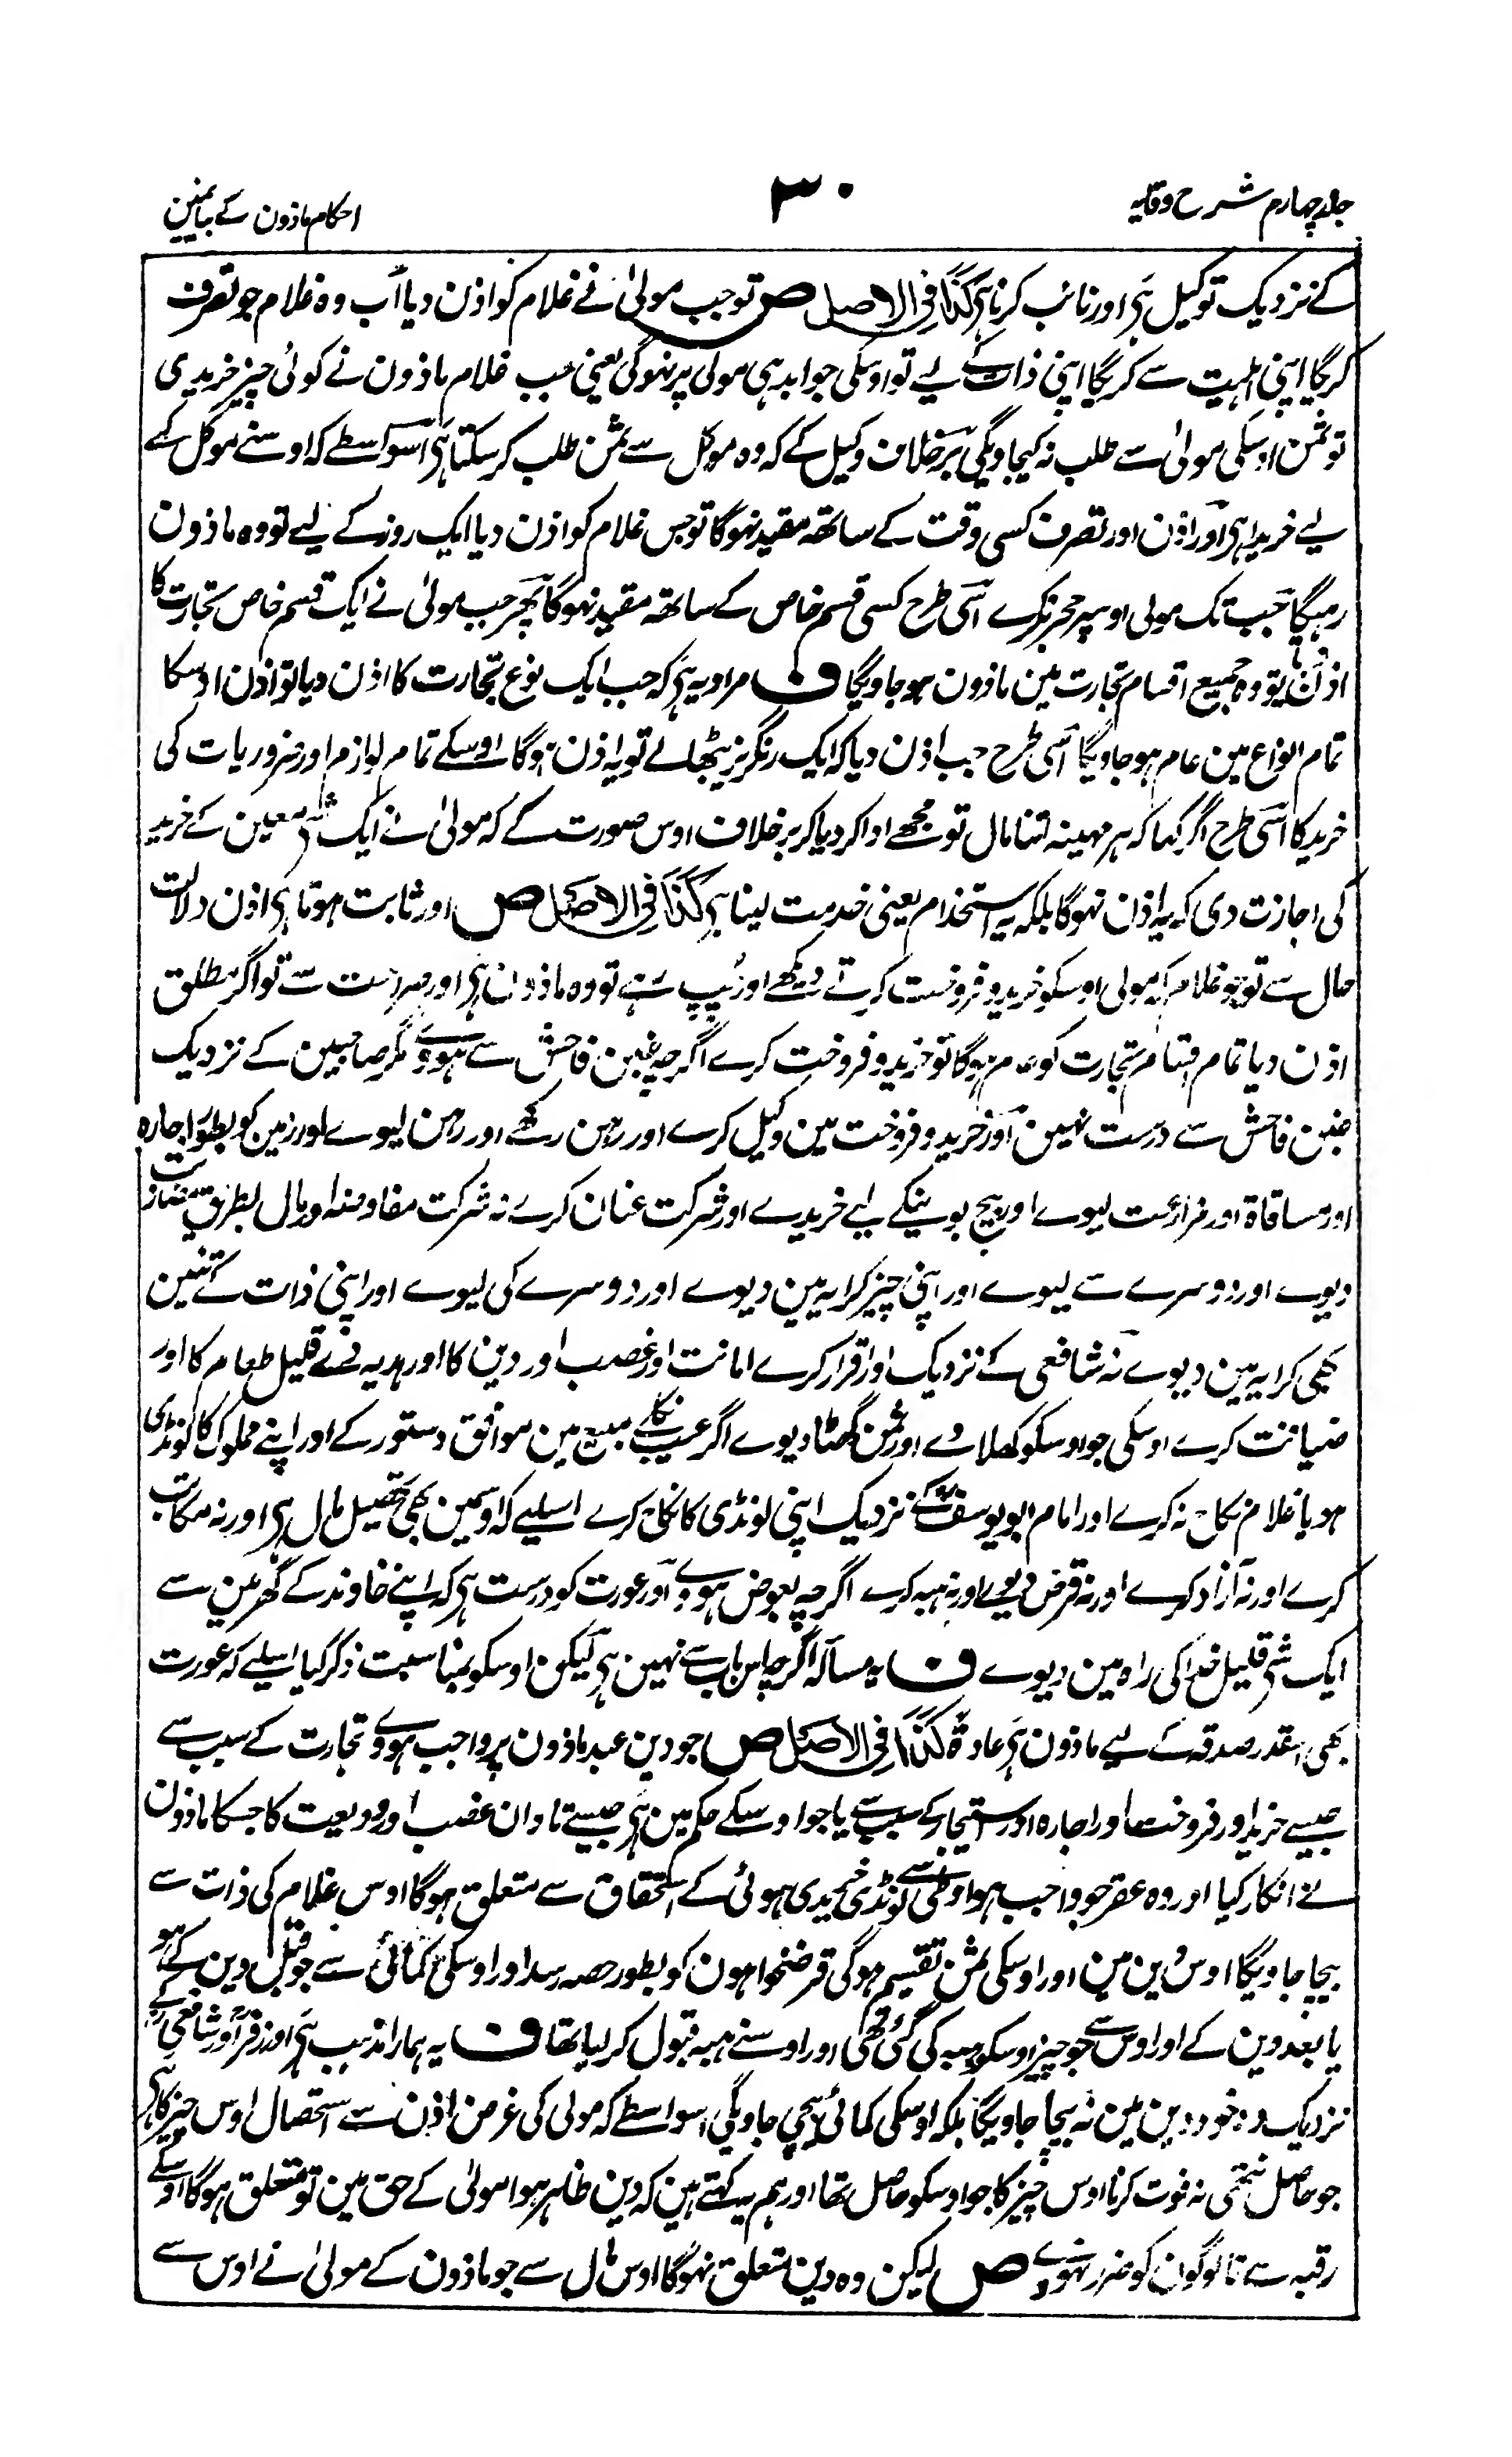 جلد چہارم شرح وقایہ
۳۰
احکام ماذون کے بیانمین
کے نزدیک توکیل ہی اور نائب کرنا ہی کذا فی الاصل ص تو جب مولیٰ نے غلام کو اذن دیا اب وہ غلام جو تصرف
کریگا اپنی اہلیت سے کریگا اپنی ذات کے لیے تو اوسکی جوابدہی مولی پر نہوگی یعنی جب غلام ماذون نے کوئی چیز خریدی
تو ثمن اوسکی مولیٰ سے طلب نہ کیجاویگی برخلاف وکیل کے کہ وہ موکل سے ثمن طلب کرسکتا ہی اسواسطے کہ اوسنے موکل کے
لیے خریدا ہی اور اذن اور تصرف کسی وقت کے ساتھ مقید نہوگا تو جس غلام کو اذن دیا ایک روز کے لیے تو وہ ماذون
رہیگا جب تک مولی اوسپر حجر نکرے اسی طرح کسی قسم خاص کے ساتھ مقید نہوگا پھر جب مولیٰ نے ایک قسم خاص تجارت کا
اذن دیا تو وہ جمیع اقسام تجارت مین ماذون ہوجاویگا ف مراد یہ ہی کہ جب ایک نوع تجارت کا اذن دیا تو اذن اوسکا
تمام انواع مین عام ہوجاویگا اسی طرح جب اذن دیا کہ ایک رنگریز بٹھالے تو یہ اذن ہوگا اوسکے تمام لوازم اور ضروریات کی
خرید کا اسی طرح اگر کہا کہ ہر مہینہ اتنا مال تو مجھے ادا کردیا کر برخلاف اوس صورت کے کہ مولیٰ نے ایک شے معین کے خرید
کی اجازت دی کہ یہ اذن نہوگا بلکہ یہ استخدام یعنی خدمت لینا ہی کذا فی الاصل ص اور ثابت ہوتا ہی اذن دلالت
حال سے تو جو غلام کہ مولی اوسکو خرید و فروخت کرتے دیکھے اور چپ رہے تو وہ ماذون ہی اور صراحت سے تو اگر مطلق
اذن دیا تمام اقسام تجارت کو عام ہوگا تو خرید و فروخت کرے اگرچہ غبن فاحش سے ہووے مگر صاحبین کے نزدیک
غبن فاحش سے درست نہین اور خرید و فروخت مین وکیل کرے اور رہن رکھے اور رہن لیوے اور زمین کو بطور اجارہ
اور مساقاۃ اور مزارعت لیوے اور بیج بونیکے لیے خریدے اور شرکت عنان کرے نہ شرکت مفاوضہ اور مال بطریق مضاربت
دیوے اور دوسرے سے لیوے اور اپنی چیز کرایہ مین دیوے اور دوسرے کی لیوے اور اپنی ذات کے تئین
بھی کرایہ مین دیوے نہ شافعی کے نزدیک اور اقرار کرے امانت اور غصب اور دین کا اور ہدیہ دے قلیل طعام کا اور
ضیافت کرے اوسکی جو اوسکو کھلاوے اور ثمن گھٹا دیوے اگر عیب نکلے مبیع مین موافق دستور کے اور اپنے مملوک کا لونڈی
ہو یا غلام نکاح نہ کرے اور امام ابویوسف کے نزدیک اپنی لونڈی کا نکاح کرے اسلیے کہ اوسمین بھی تحصیل مال ہی اور نہ مکاتب
کرے اور نہ آزاد کرے اور نہ قرض دیوے اور نہ ہبہ کرے اگرچہ بعوض ہووے اور عورت کو درست ہی کہ اپنے خاوند کے گھر مین سے
ایک شی قلیل خدا کی راہ مین دیوے ف یہ مسألہ اگرچہ اس باب سے نہین ہی لیکن اوسکو بمناسبت ذکر کیا اسلیے کہ عورت
بھی اسقدر صدقہ کے لیے ماذون ہی عادۃ کذا فی الاصل ص جو دین عبد ماذون پر واجب ہووے تجارت کے سبب سے
جیسے خرید اور فروخت اور اجارہ اور استیجار کے سبب سے یا جو اوسکے حکم مین ہی جیسے تاوان غصب اور ودیعت کا جسکا ماذون
نے انکار کیا اور وہ عقر جو واجب ہوا وطی سے لونڈی خریدی ہوئی کے استحقاق سے متعلق ہوگا اوس غلام کی ذات سے
بیچا جاویگا اوس دین مین اور اوسکی ثمن تقسیم ہوگی قرضخواہون کو بطور حصہ رسد اور اوسکی کمائی سے جو قبل دین کے ہو
یا بعد دین کے اور اوس سے جو چیز اوسکو ہبہ کی گئی تھی اور اوسنے ہبہ قبول کرلیا تھا ف یہ ہمارا مذہب ہی اور زفر اور شافعی کے
نزدیک وہ خود دین مین نہ بیچا جاویگا بلکہ اوسکی کمائی بیچی جاویگی اسواسطے کہ مولی کی غرض اذن سے استحصال اوس چیز کا ہی
جو حاصل نتھی نہ فوت کرنا اوس چیز کا جو اوسکو حاصل تھا اور ہم یہ کہتے ہین کہ دین ظاہر ہوا مولیٰ کے حق مین تو متعلق ہوگا اوسکے
رقبہ سے تا لوگون کو ضرر نہووے ص لیکن وہ دین متعلق نہوگا اوس مال سے جو ماذون کے مولیٰ نے اوس سے